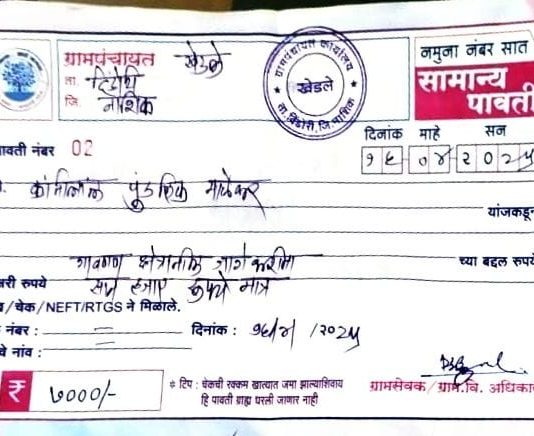 ग्रामपंचायत खेडले
ता. दिंडोरी
जि. नाशिक
ग्रामपंचायत कार्यालय
खेडले
ता. दिंडोरी, जि. नाशिक
नमुना नंबर सात
सामान्य
पावती
दिनांक माहे सन
१६ ०४ २०२५
पावती नंबर 02
पुंडलिक
यांजकडून
गावठाण क्षेत्रातील जागे करीता च्या बद्दल रुपये
अक्षरी रुपये सात हजार रुपये मात्र
/चेक/NEFT/RTGS ने मिळाले.
नंबर : = दिनांक : १६/४/२०२५
चे नांव : =
₹ ७०००/-
* टिप : चेकची रक्कम खात्यात जमा झाल्याशिवाय
हि पावती ग्राह्य धरली जाणार नाही
ग्रामसेवक / ग्रा. वि. अधिका